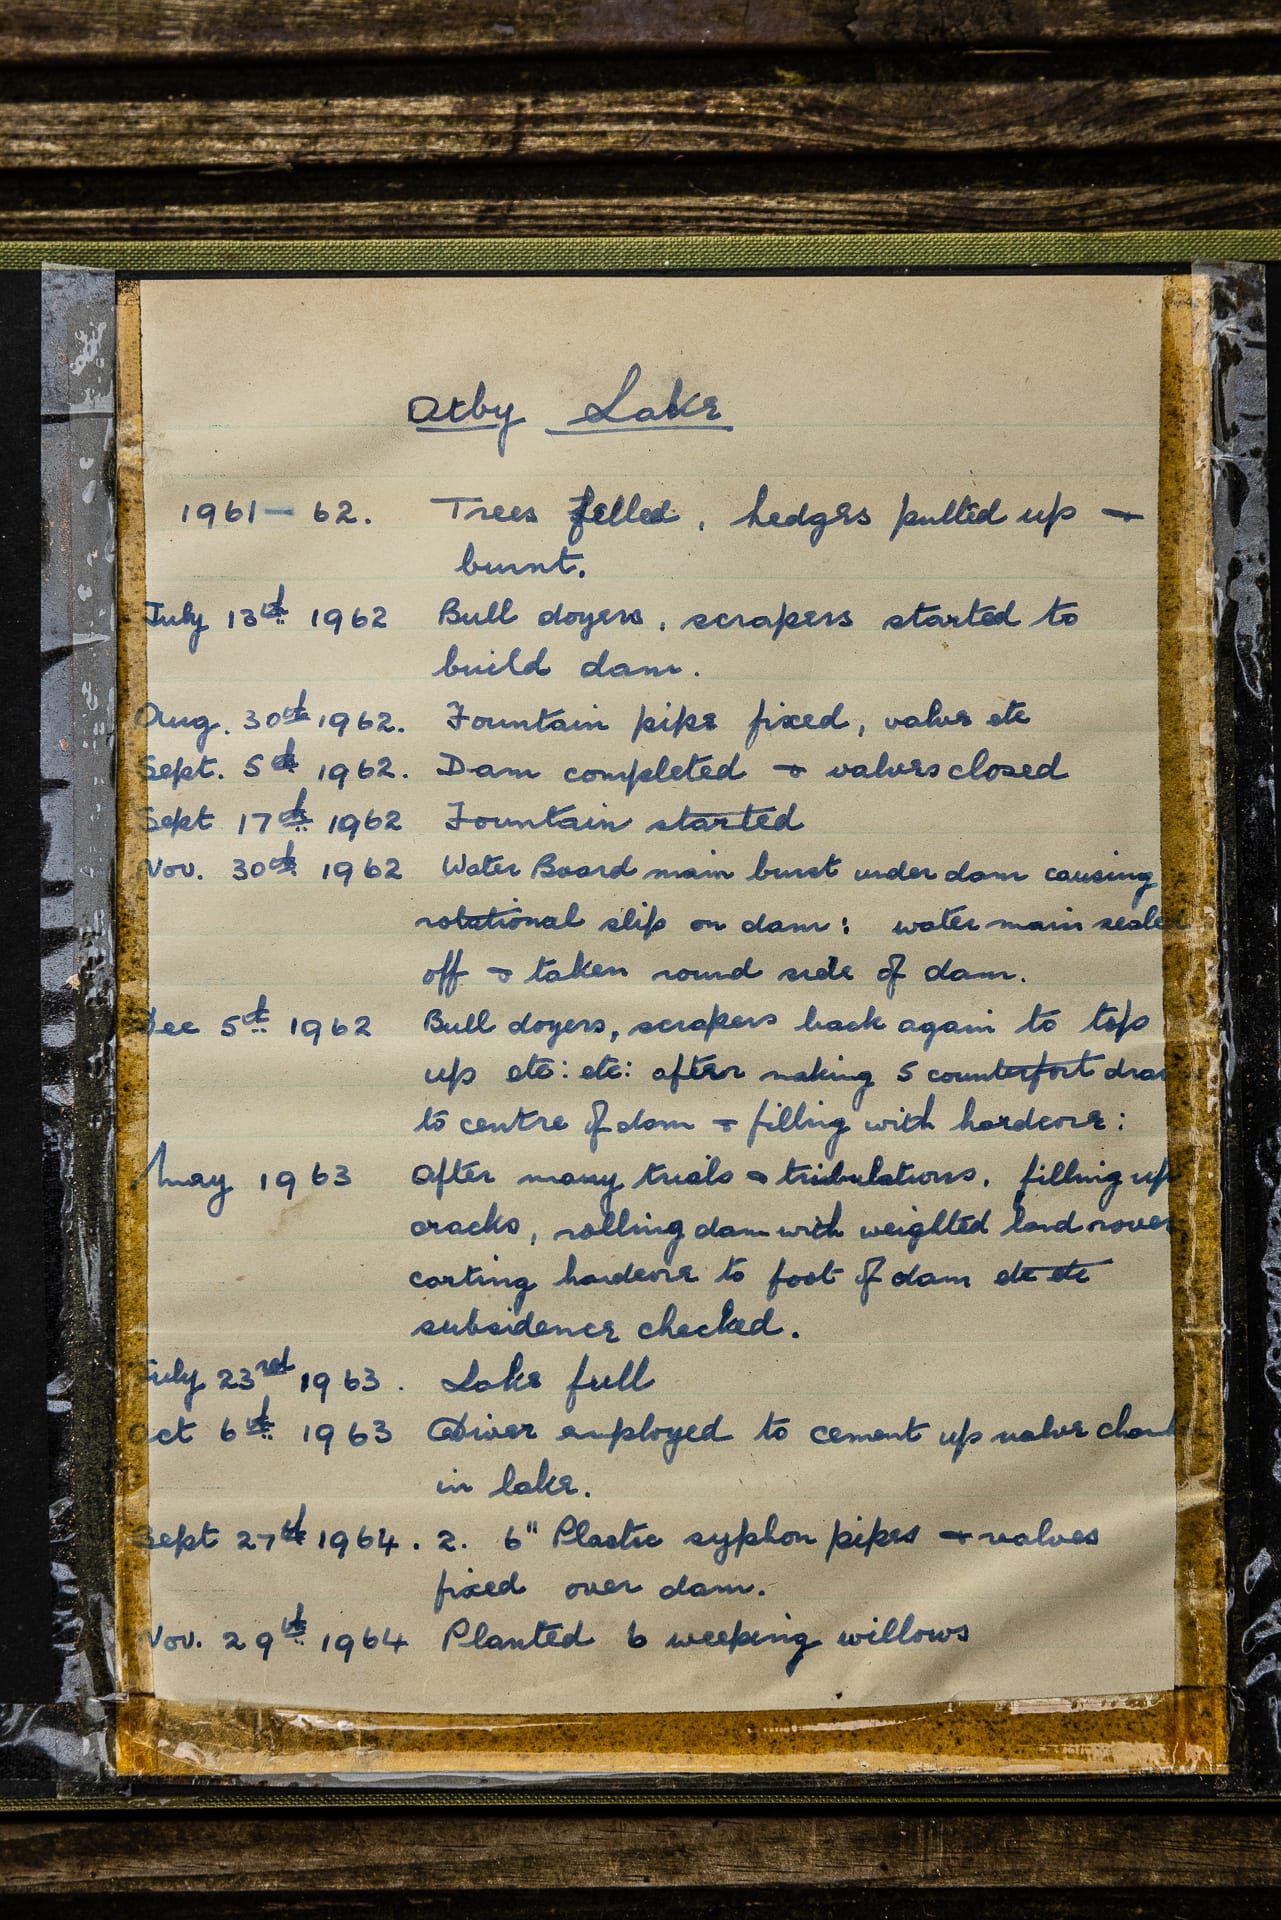 Otby Lake
1961 – 62. Trees felled, hedges pulled up &
burnt.
July 13th 1962 Bull dozers, scrapers started to
build dam.
Aug. 30th 1962. Fountain pipe fixed, valve etc
Sept. 5th 1962. Dam completed & valves closed
Sept 17th 1962 Fountain started
Nov. 30th 1962 Water Board main burst under dam causing
rotational slip on dam: water main sealed
off & taken round side of dam.
Dec 5th 1962 Bull dozers, scrapers back again to top
up etc: etc: after making 5 counterfort
to centre of dam & filling with hardcore:
May 1963 After many trials & tribulations, filling up
cracks, rolling dam with weighted land rover
carting hardcore to foot of dam etc etc
subsidence checked.
July 23rd 1963. Lake full
Oct 6th 1963 Diver employed to cement up valve
in lake.
Sept 27th 1964. 2. 6" Plastic syphon pipes & valves
fixed over dam.
Nov. 29th 1964 Planted 6 weeping willows